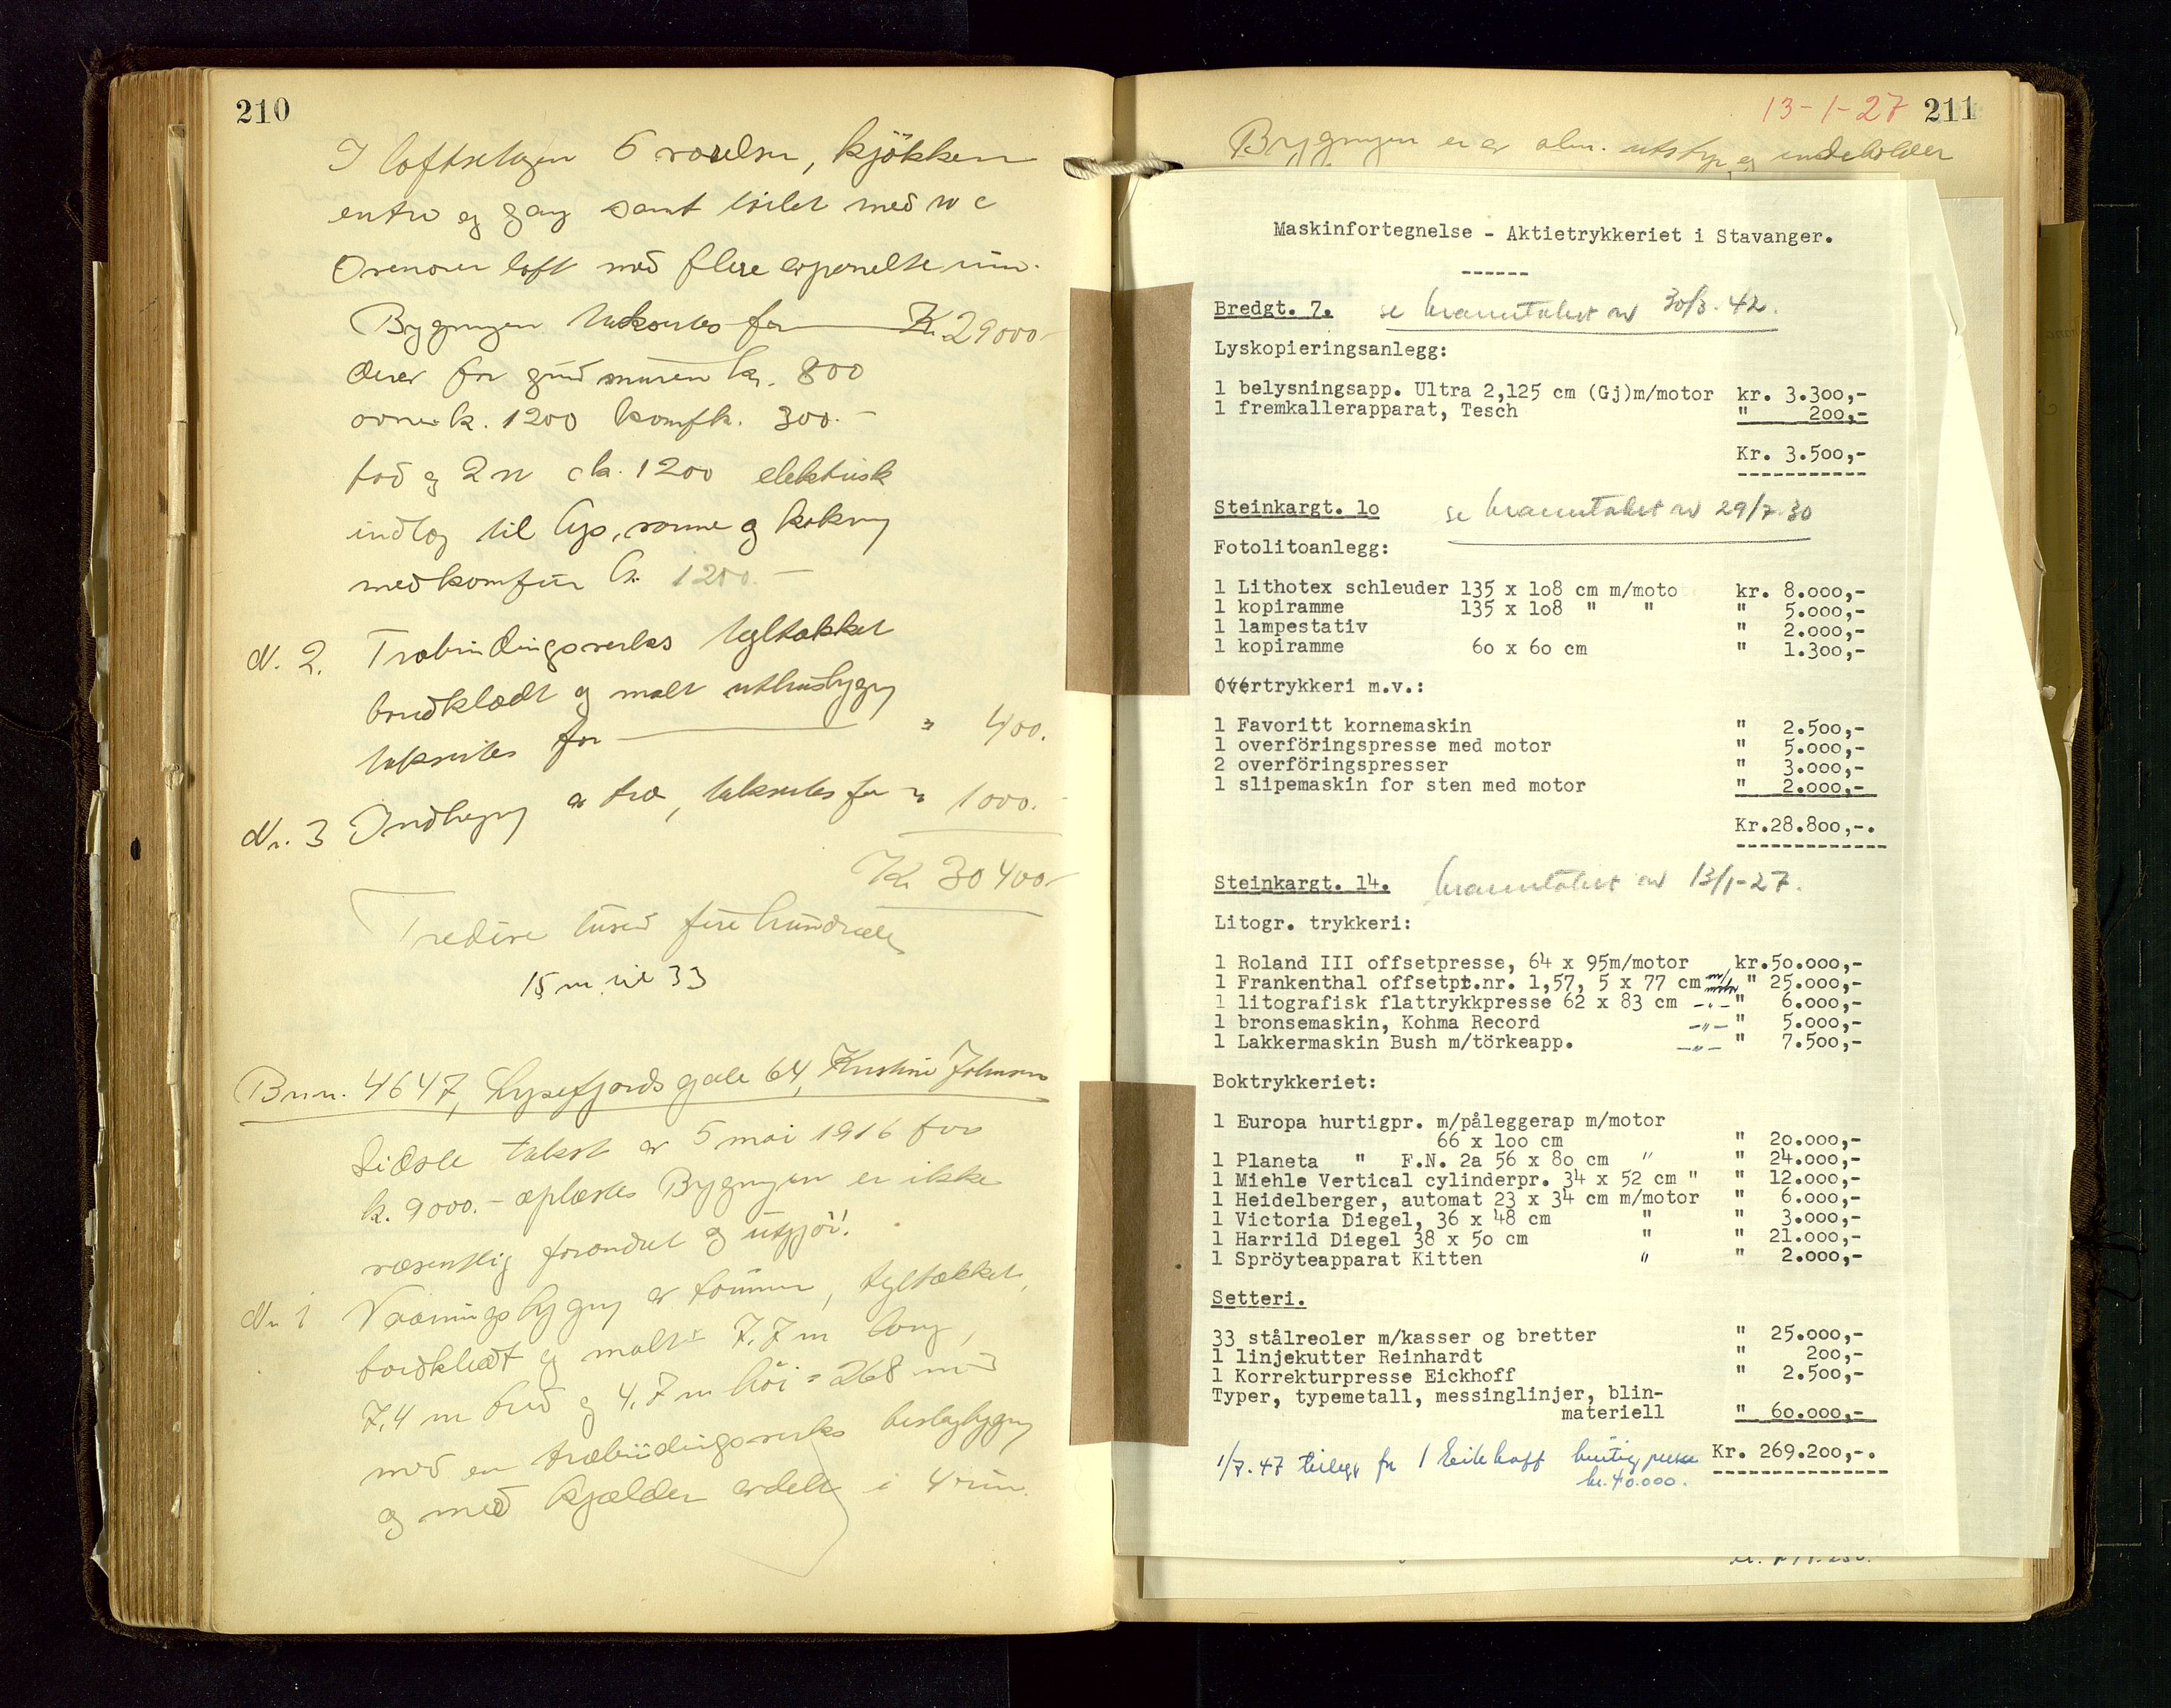 210
I loftsetagen 5 værelser, kjøkken
entre og gang samt toilet med w c
Ovenover loft med flere avpanelte rum.
Bygningen takseres for Kr. 29000-
derav for grundmuren kr. 800
ovner k. 1200 komf k. 300.-
kr. 1200 elektrisk
indlæg til lys, varme og kokning
med komfur kr. 1200.-
N. 2. Træbindingsverks tegltækket
bordklædt og malt uthusbygn
takseres for " 400.
Nr. 3 Indhegn av træ, takseres for " 1000.-
Kr 30400-
Tredive tusen fire hundrede
15 m til 33
Bnr. 4647, Lysefjords gate 64, Kristine Johnsen
Sidste takst av 5 mai 1916 for
k. 9000.- oplæstes Bygningen er ikke
væsentlig forandret og utgjør:
Nr 1 Vaaningsbygning av tømmer, tegltækket,
bordklædt og malt 7.7 m lang,
7.4 m bred og 4.7 m høi = 268 m3
med en træbindingsverks beslagbygn
og med kjælder avdelt i 4 rum.
13-1-27 211
Bygningen er av alm. utstyr og indeholder
Maskinfortegnelse - Aktietrykkeriet i Stavanger.
------
Bredgt. 7. se branntakst av 30/3.42.
Lyskopieringsanlegg:
1 belysningsapp. Ultra 2,125 cm (Gj)m/motor kr. 3.300,-
1 fremkallerapparat, Tesch " 200,-
Kr. 3.500,-
Steinkargt. 1o se branntakst av 29/7.30
Fotolitoanlegg:
1 Lithotex schleuder 135 x 1o8 cm m/moto kr. 8.000,-
1 kopiramme 135 x 1o8 " " " 5.000,-
1 lampestativ " 2.000,-
1 kopiramme 6o x 6o cm " 1.300,-
Overtrykkeri m.v.:
1 Favoritt kornemaskin " 2.500,-
1 overföringspresse med motor " 5.000,-
2 overföringspresser " 3.000,-
1 slipemaskin for sten med motor " 2.000,-
Kr.28.800,-.
Steinkargt. 14. branntakst av 13/1-27.
Litogr. trykkeri:
1 Roland III offsetpresse, 64 x 95m/motor kr.50.000,-
1 Frankenthal offsetpr.nr. 1,57, 5 x 77 cm " 25.000,-
1 litografisk flattrykkpresse 62 x 83 cm -"- " 6.000,-
1 bronsemaskin, Kohma Record -"- " 5.000,-
1 Lakkermaskin Bush m/törkeapp. -"- " 7.500,-
Boktrykkeriet:
1 Europa hurtigpr. m/påleggerap m/motor
66 x 1oo cm " 20.000,-
1 Planeta " F.N. 2a 56 x 8o cm " " 24.000,-
1 Miehle Vertical cylinderpr. 34 x 52 cm " " 12.000,-
1 Heidelberger, automat 23 x 34 cm m/motor " 6.000,-
1 Victoria Diegel, 36 x 48 cm " " 3.000,-
1 Harrild Diegel 38 x 5o cm " " 21.000,-
1 Spröyteapparat Kitten " " 2.000,-
Setteri.
33 stålreoler m/kasser og bretter " 25.000,-
1 linjekutter Reinhardt " 200,-
1 Korrekturpresse Eickhoff " 2.500,-
Typer, typemetall, messinglinjer, blin-
materiell " 60.000,-
Kr. 269.200,-.
1/7.47 tillegg for 1 Eickhoff hurtigpresse
kr. 40.000.